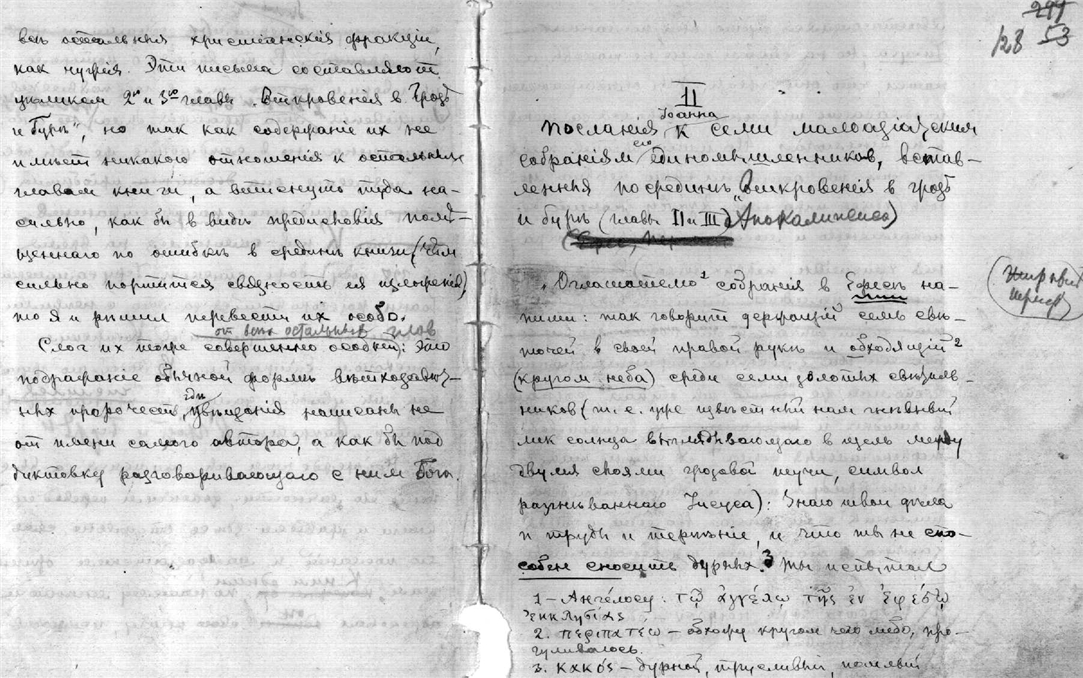 всѣ остальныя христіанскія фракціи,
как чужія. Эти письма составляют
цѣликом 2ю и 3ю главы „Откровенія в Грозѣ
и Бурѣ", но так как содержаніе их не
имѣет никакого отношенія к остальным
главам книги, а втиснуто туда на-
сильно, как бы в видѣ предисловія помѣ-
щеннаго по ошибкѣ в срединѣ книги (чѣм
сильно портится связность ея изложенія),
то я и рѣшил перевести их особо.
от всѣх остальных глав
Слог их тоже совершенно особый: это
подражаніе обычной формѣ ветхозавѣт-
ных пророчеств, гдѣ увѣщанія написаны не
от имени самого автора, а как бы под
диктовку разговаривающаго с ним Бога.
299
128 53
II
Іоанна
Посланія к семи малоазіатским
собраніям его единомышленников, встав-
ленныя посрединѣ „Откровенія в грозѣ
и бурѣ" (главы II и III Апокалипсиса)
„Оглашателю¹ собранія в Ефесѣ на-
(жирный
шриф)
пиши: так говорит держащій семь свѣ-
точей в своей правой рукѣ и обходящій²
(кругом неба) среди семи золотых свѣтиль-
ников (т. е. уже извѣстный нам гнѣвный
лик солнца выглядывающаго в щель между
двумя слоями грозовой тучи, символ
разгнѣваннаго Іисуса): Знаю твои дѣла
и труды и терпѣніе, и что ты не спо-
собен сносить дурных.³ Ты испытал
1 – Ангелосу: τῷ ἀγγέλῳ τῆς ἐν Ἐφέσῳ
ἐκκλησίας
2. περιπατέω – обхожу кругом чего либо, про-
гуливаюсь.
3. κακός – дурной, трусливый,